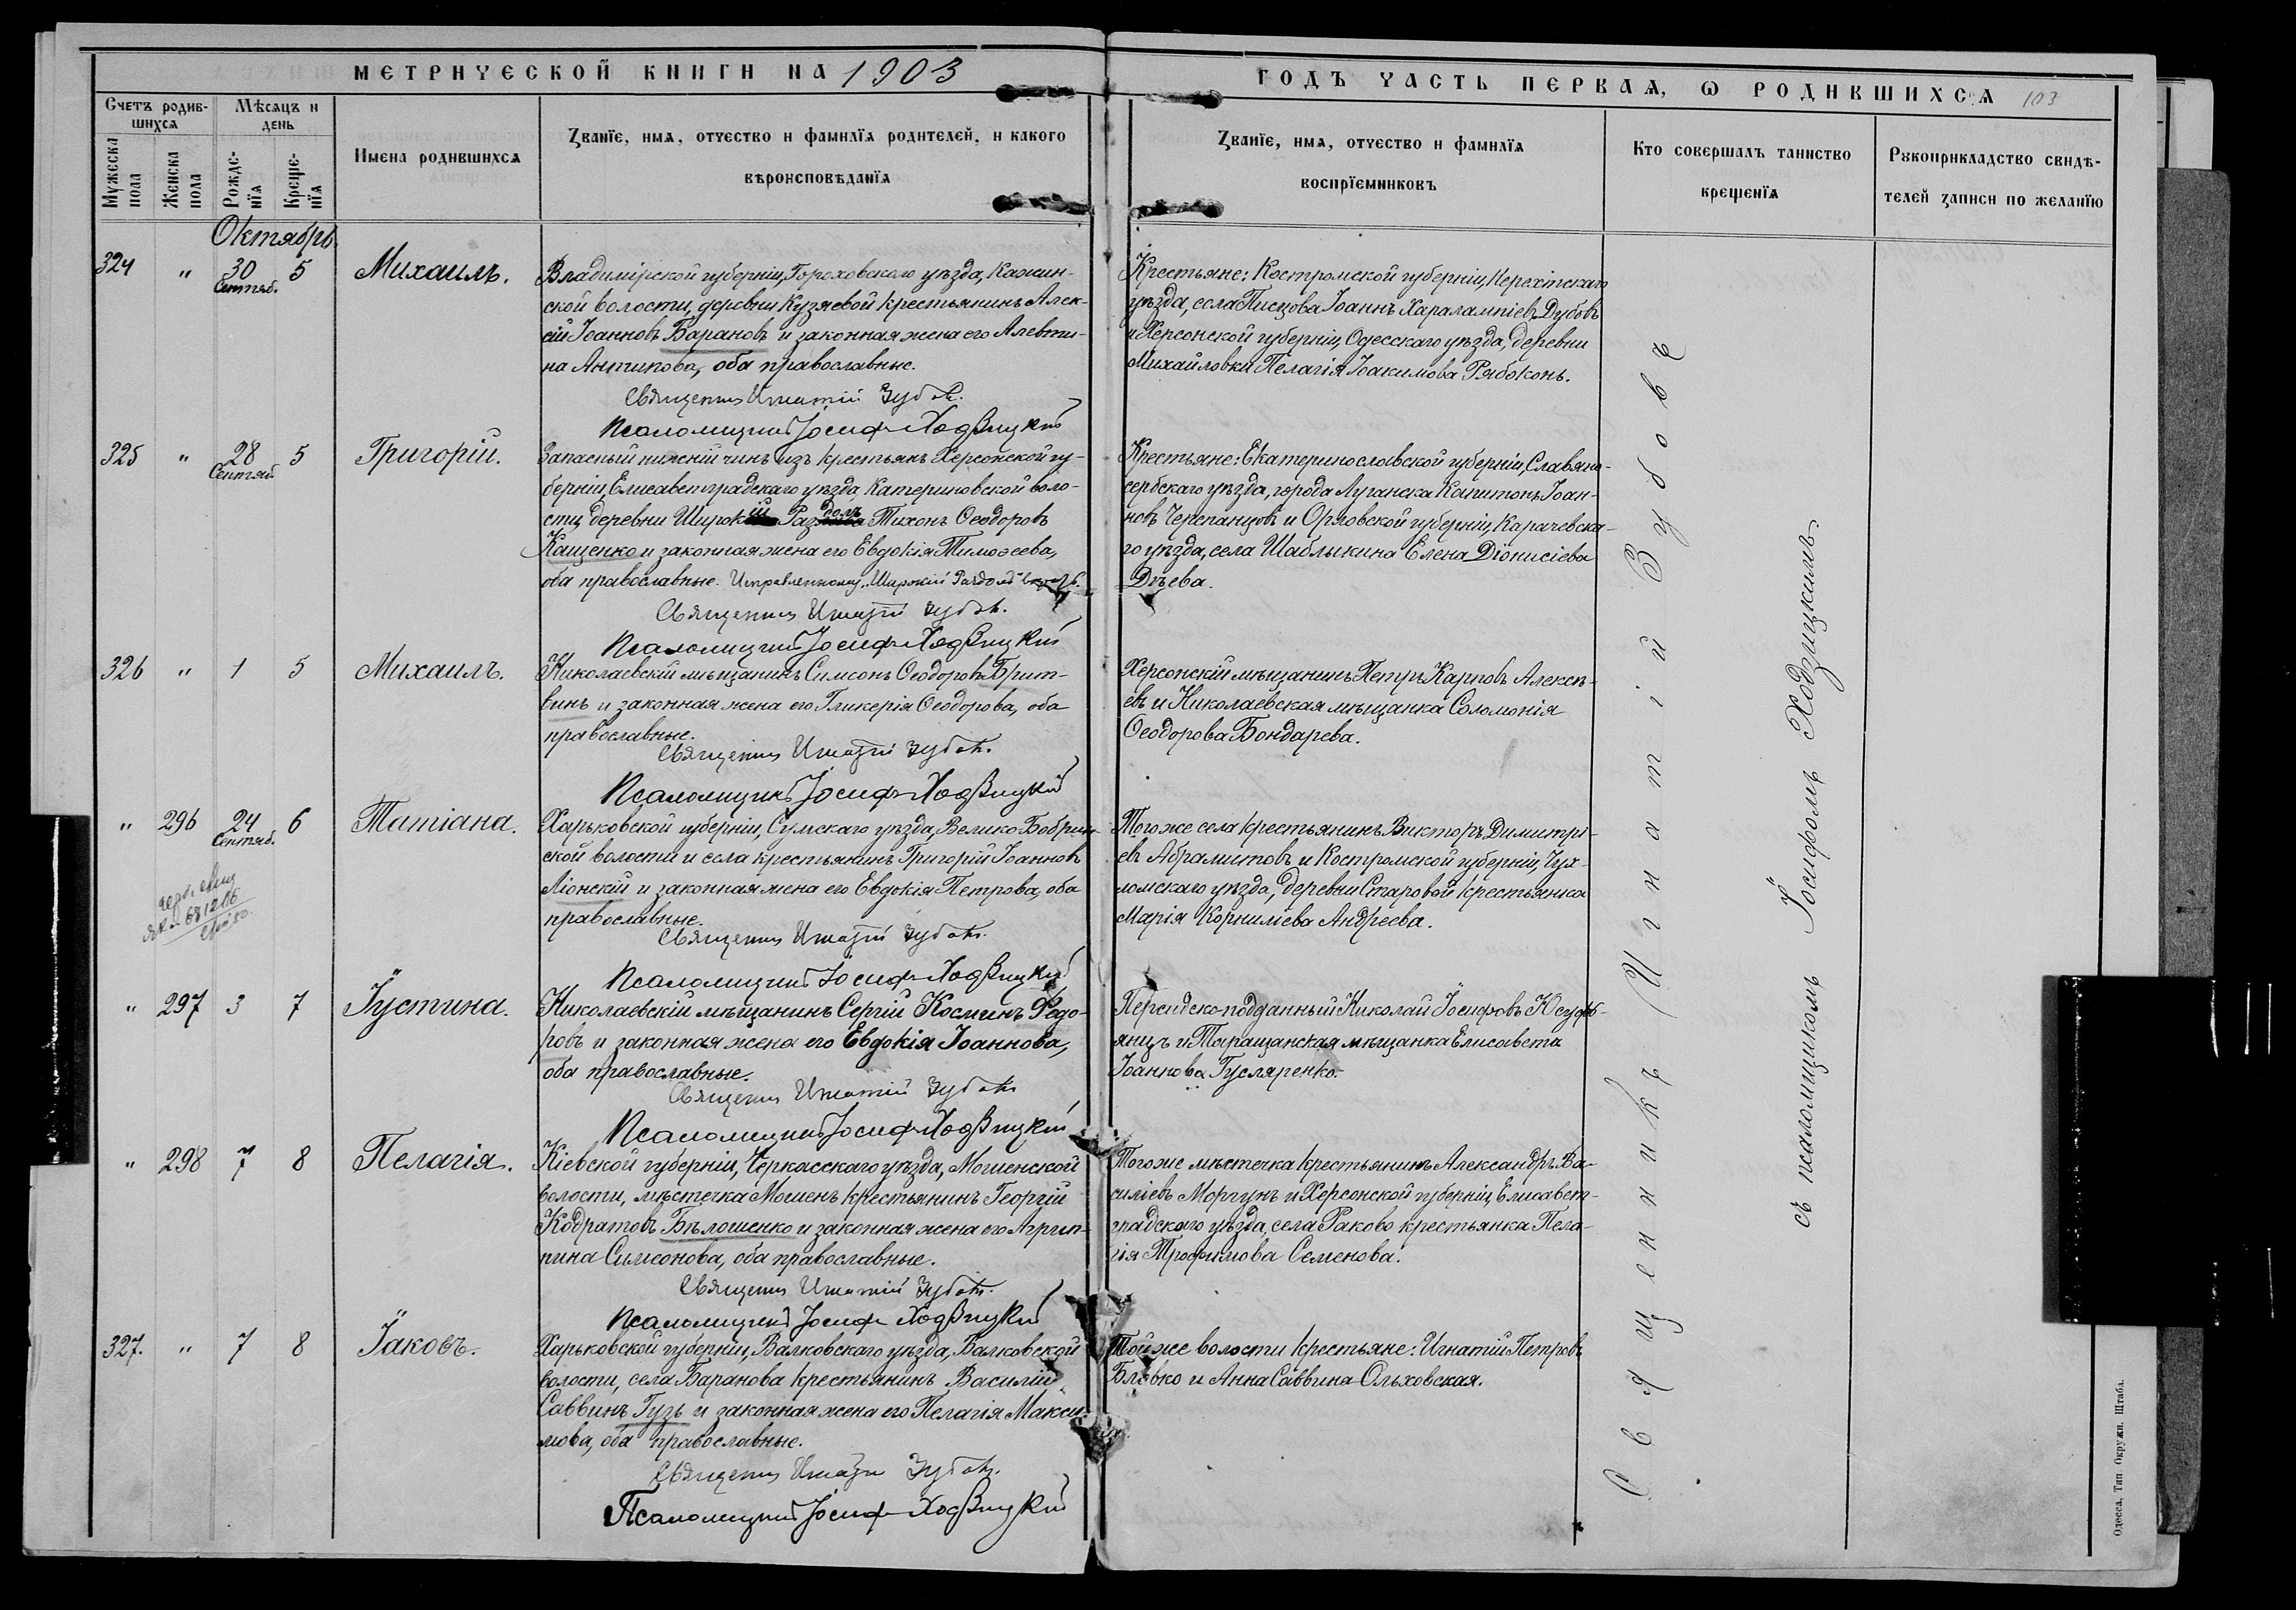 МЕТРИЧЕСКОЙ КНИГИ НА 1903
ГОДЪ ЧАСТЬ ПЕРВАЯ, Ѡ РОДИВШИХСЯ 103
Счетъ родив-
шихся
Мужеска
пола
Женска
пола
Мѣсяцъ и
день
Рожде-
нїя
Креще-
нїя
Имена родившихся
Званїе, имя, отчество и фамилїя родителей, и какого
вѣроисповѣданїя
Званїе, имя, отчество и фамилїя
воспрїемниковъ
Кто совершалъ таинство
крещенїя
Рукоприкладство свидѣ-
телей записи по желанїю
Октябрь
324 " 30 Сентяб. 5 Михаилъ.
Владимірской губерніи, Гороховского уѣзда, Кожин-
ской волости, деревни Кузяевой крестьянинъ Алек-
сій Іоанновъ Барановъ и законная жена его Алевти-
на Антипова, оба православные.
Священникъ Игнатій Зубовъ.
Псаломщикъ Іосифъ Ходзицкій
Крестьяне: Костромской губерніи, Нерехтскаго
уѣзда, села Писцова Іоаннъ Харалампіевъ Дубовъ
и Херсонской губерніи, Одесскаго уѣзда, деревни
Михайловки Пелагія Іоакимова Рябоконь.
325 " 28 Сентяб. 5 Григорій.
Запасный нижній чинъ изъ крестьянъ Херсонской гу-
берніи, Елисаветградскаго уѣзда, Катериновской воло-
сти, деревни Широкій Раздолъ Тихонъ Ѳеодоровъ
Кащенко и законная жена его Евдокія Тимоѳеева,
оба православные. Исправленному „Широкій Раздолъ" вѣрить.
Священникъ Игнатій Зубовъ.
Псаломщикъ Іосифъ Ходзицкій
Крестьяне: Екатеринославской губерніи, Славяно-
сербскаго уѣзда, города Луганска Капитонъ Іоан-
новъ Черепанцовъ и Орловской губерніи, Карачевска-
го уѣзда, села Шаблыкина Елена Діонисіева
Дѣева.
326 " 1 5 Михаилъ.
Николаевскій мѣщанинъ Симеонъ Ѳеодоровъ Брит-
винъ и законная жена его Гликерія Ѳеодорова, оба
православные.
Священникъ Игнатій Зубовъ.
Псаломщикъ Іосифъ Ходзицкій
Херсонскій мѣщанинъ Петръ Карповъ Алексѣ-
евъ и Николаевская мѣщанка Соломонія
Ѳеодорова Бондарева.
" 296 24 Сентяб. 6 Татіана.
Харьковской губерніи, Сумскаго уѣзда, Велико-Бобрик-
ской волости и села крестьянинъ Григорій Іоанновъ
Ліонскій и законная жена его Евдокія Петрова, оба
православные.
Священникъ Игнатій Зубовъ.
Псаломщикъ Іосифъ Ходзицкій
Того же села крестьянинъ Викторъ Димитрі-
евъ Абрамитовъ и Костромской губерніи, Чух-
ломскаго уѣзда, деревни Старовой крестьянка
Марія Корниліева Андреева.
" 297 3 7 Іустина.
Николаевскій мѣщанинъ Сергій Косминъ Ѳедо-
ровъ и законная жена его Евдокія Іоаннова,
оба православные.
Священникъ Игнатій Зубовъ
Псаломщикъ Іосифъ Ходзицкій
Персидско-подданный Николай Іосифовъ Юсуфъ-
янцъ и Таращанская мѣщанка Елисавета
Іоаннова Гусляренко.
" 298 7 8 Пелагія.
Кіевской губерніи, Черкасскаго уѣзда, Мошенской
волости, мѣстечка Мошенъ крестьянинъ Георгій
Кодратовъ Бѣлошенко и законная жена его Агрип-
пина Симеонова, оба православные.
Священникъ Игнатій Зубовъ.
Псаломщикъ Іосифъ Ходзицкій
Того же мѣстечка крестьянинъ Александръ Ва-
силіевъ Моргунъ и Херсонской губерніи, Елисавет-
градскаго уѣзда, села Раково крестьянка Пела-
гія Трофимова Семенова.
327. " 7 8 Іаковъ.
Харьковской губерніи, Валковскаго уѣзда, Валковской
волости, села Баранова крестьянинъ Василій
Саввинъ Гузь и законная жена его Пелагія Макси-
мова, оба православные.
Священникъ Игнатій Зубовъ.
Псаломщикъ Іосифъ Ходзицкій
Той же волости крестьяне: Игнатій Петровъ
Бловко и Анна Саввина Ольховская.
Священникъ Игнатій Зубовъ
съ псаломщикомъ Іосифомъ Ходзицкимъ.
Одесса. Тип Окружн. Штаба.